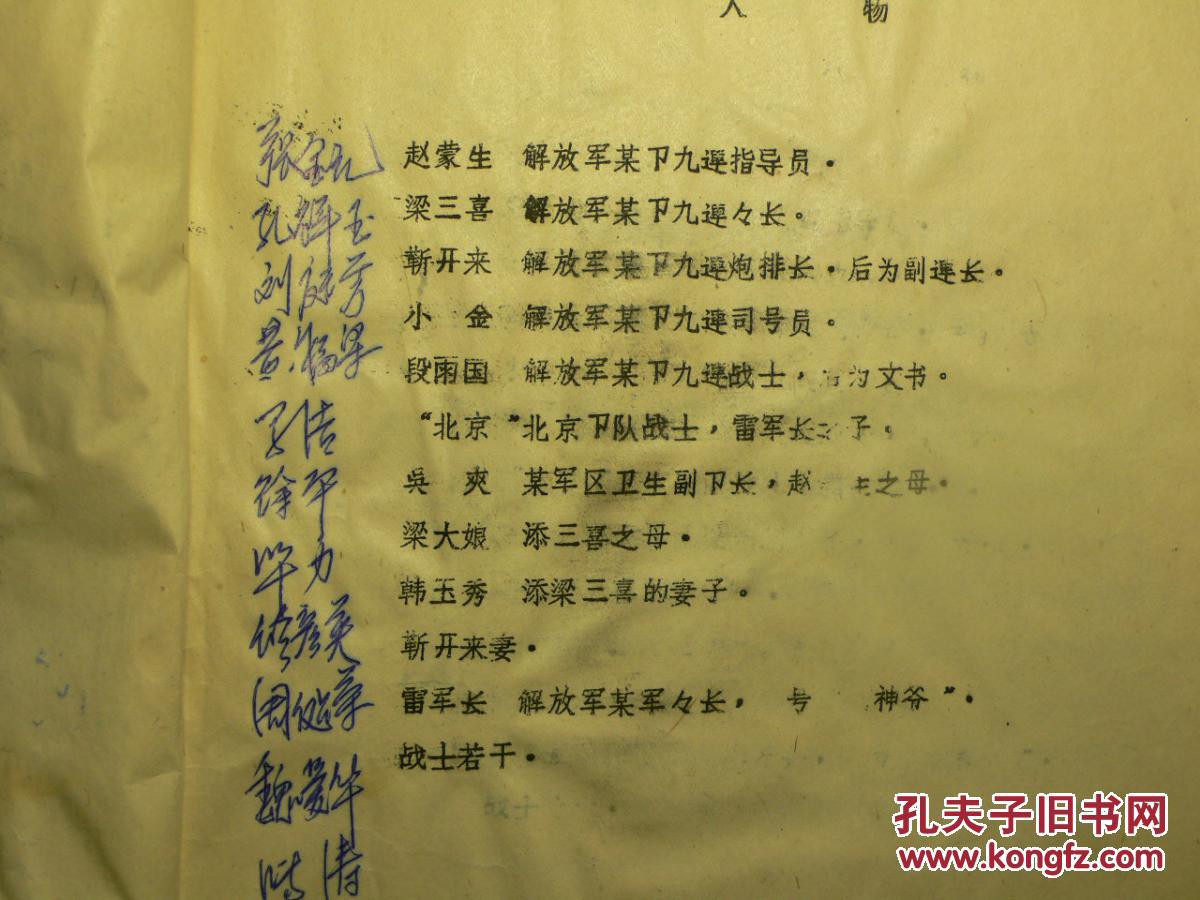 人 物
赵蒙生 解放军某卩九連指导员.
梁三喜 解放军某卩九連々长。
靳开来 解放军某卩九連炮排长.后为副連长。
小 金 解放军某卩九連司号员。
段雨国 解放军某卩九連战士,为文书。
“北京”北京卩队战士,雷军长子.
吳 爽 某军区卫生副卩长,赵之母.
梁大娘 添三喜之母.
韩玉秀 添梁三喜的妻子。
靳开来妻.
雷军长 解放军某军々长, 号 神爷”.
战士若干.
张
孔辉玉
刘 芳
黄福
洁
徐平
华力
佟彦英
周
魏嗳华
涛
孔夫子旧书网
www.kongfz.com